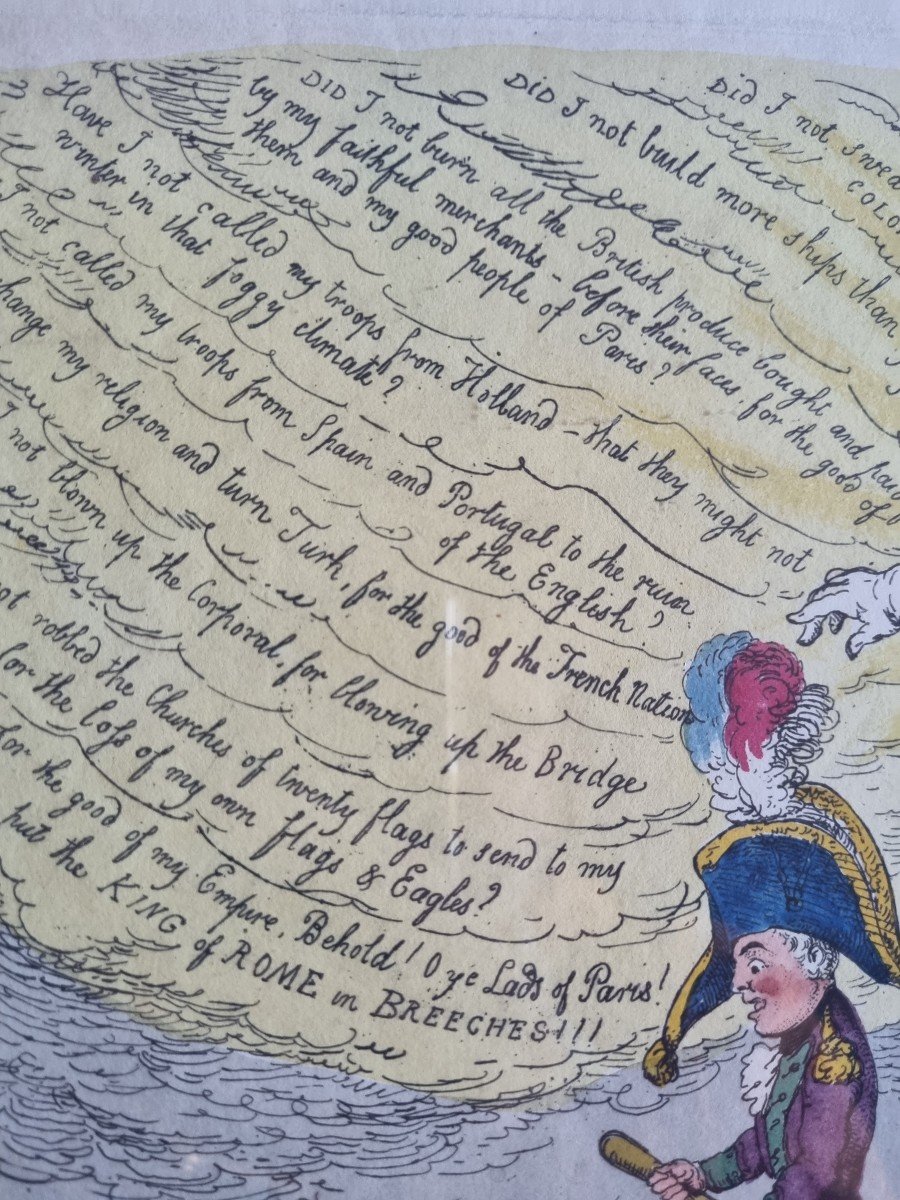 Did I not
COLO
DID I not build more ships than
DID I not burn all the British produce bought and
by my faithful merchants – before their faces, for the good of
them and my good people of Paris?
Have I not called my troops from Holland – that they might not
winter in that foggy climate?
I not called my troops from Spain and Portugal to the ruin
of the English?
change my religion and turn Turk, for the good of the French Nation
I not blown up the Corporal, for blowing up the Bridge
not robbed the Churches of twenty flags to send to my
for the loſs of my own flags & Eagles?
for the good of my Empire. Behold! O ye Lads of Paris!
put the KING of ROME in BREECHES!!!